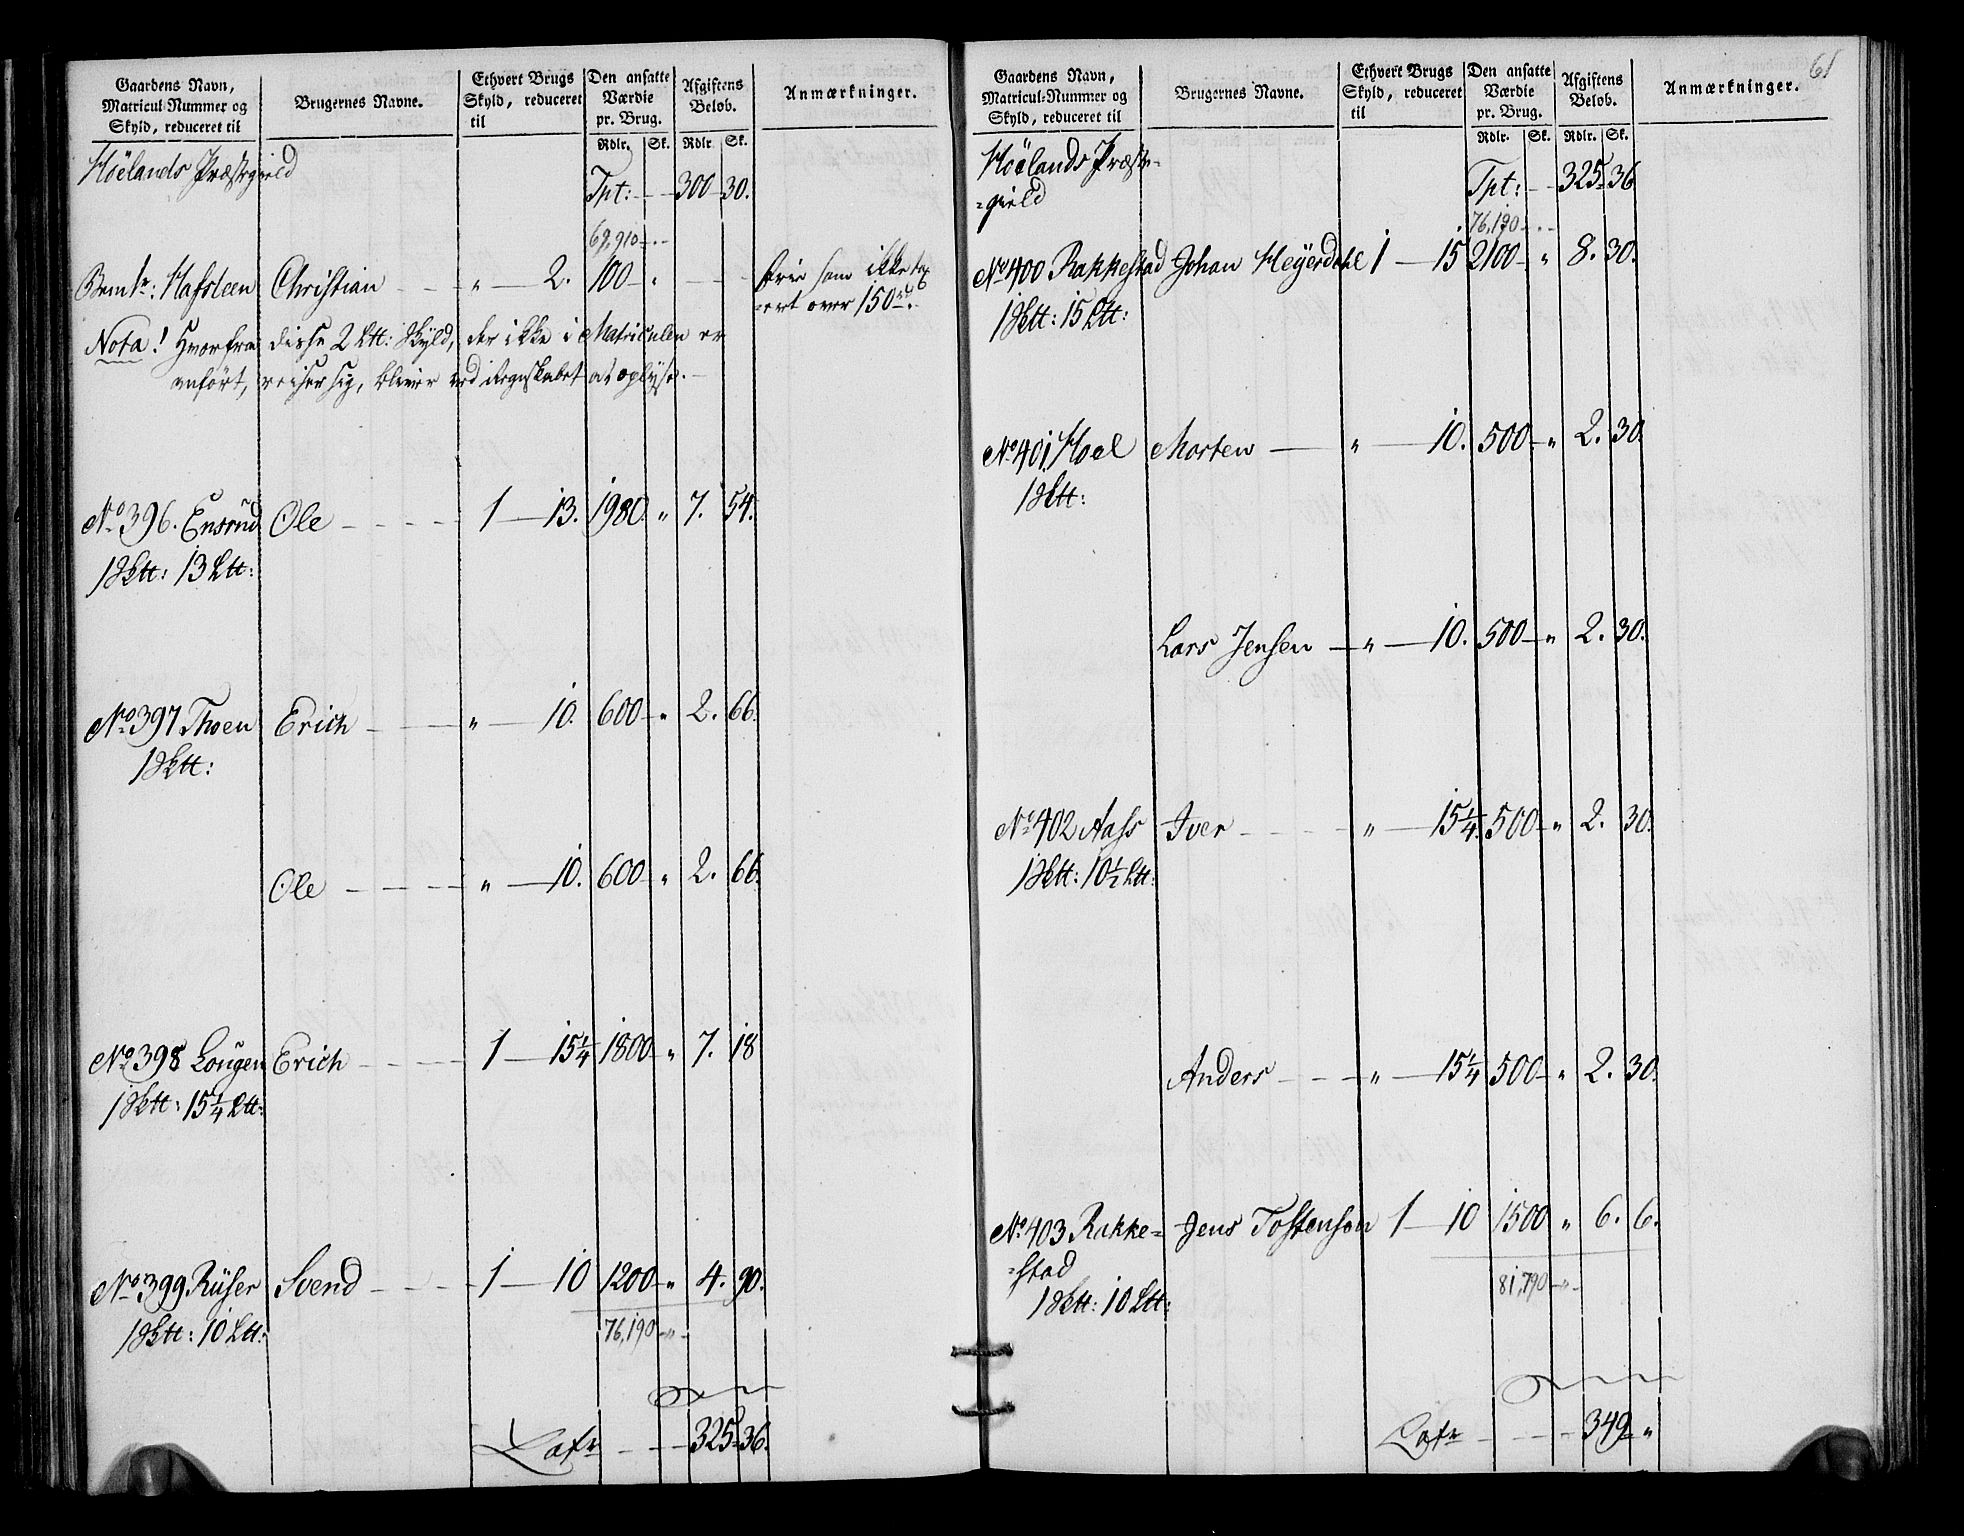 Gaardens Navn, Matricul-Nummer og Skyld, reduceret til
Brugernes Navne.
Ethvert Brugs Skyld, reduceret til
Den ansatte Værdie pr. Brug.
Afgiftens Beløb.
Anmærkninger.
Rdlr. Sk. Rdlr. Sk.
Höelands Præstegield
Tpt: - - 300 - 30.
69,910 - " -
Hafsteen Christian - - - " - 2. 100 - " - - - frie som ikke tax
-ert over 150 rd.
Nota! Hvorfra disse 2 Ltt: Skyld, der ikke i Matriculen er
anført, reiser sig, bliver ved Regnskabet at oplyse. -
No 396. Ensrud Ole - - - - 1 - 13. 1980. " 7. 54.
1 Sktt: 13 Ltt:
No 397 Thoen Erich - - - " - 10. 600 - " 2. 66.
1 Sktt:
Ole - - - - " - 10. 600 - " 2. 66.
No 398 Lougen Erich - - - - 1 - 15 1/4 1800 - " 7. 18
1 Sktt: 15 1/4 Ltt:
No 399 Rüser Svend - - - - 1 - 10 1200 - " 4. 90.
1 Sktt: 10 Ltt:
76,190 - " -
Lafr - - - 325 - 36.
61
Gaardens Navn, Matricul-Nummer og Skyld, reduceret til
Brugernes Navne.
Ethvert Brugs Skyld, reduceret til
Den ansatte Værdie pr. Brug.
Afgiftens Beløb.
Anmærkninger.
Rdlr. Sk. Rdlr. Sk.
Höelands Præste-
-gield
Tpt: - - 325 - 36
76,190 - " -
No 400 Rakkestad Johan Heyerdahl 1 - 15 2100 - " 8. 30.
1 Sktt: 15 Ltt:
No 401 Hoel Morten - " - 10. 500 - " 2. 30.
1 Sktt:
Lars Jensen - " - 10. 500 - " 2. 30.
No 402 Aass Iver - - - - " - 15 1/4. 500 - " 2. 30.
1 Sktt: 10 1/2 Ltt:
Anders - - - " - 15 1/4 500 - " 2. 30.
No 403 Rakke=
=stad
Jens Tostensen 1 - 10 1500 " 6. 6.
1 Sktt: 10 Ltt:
81,790 - " -
Lafr - - - - 349 - "